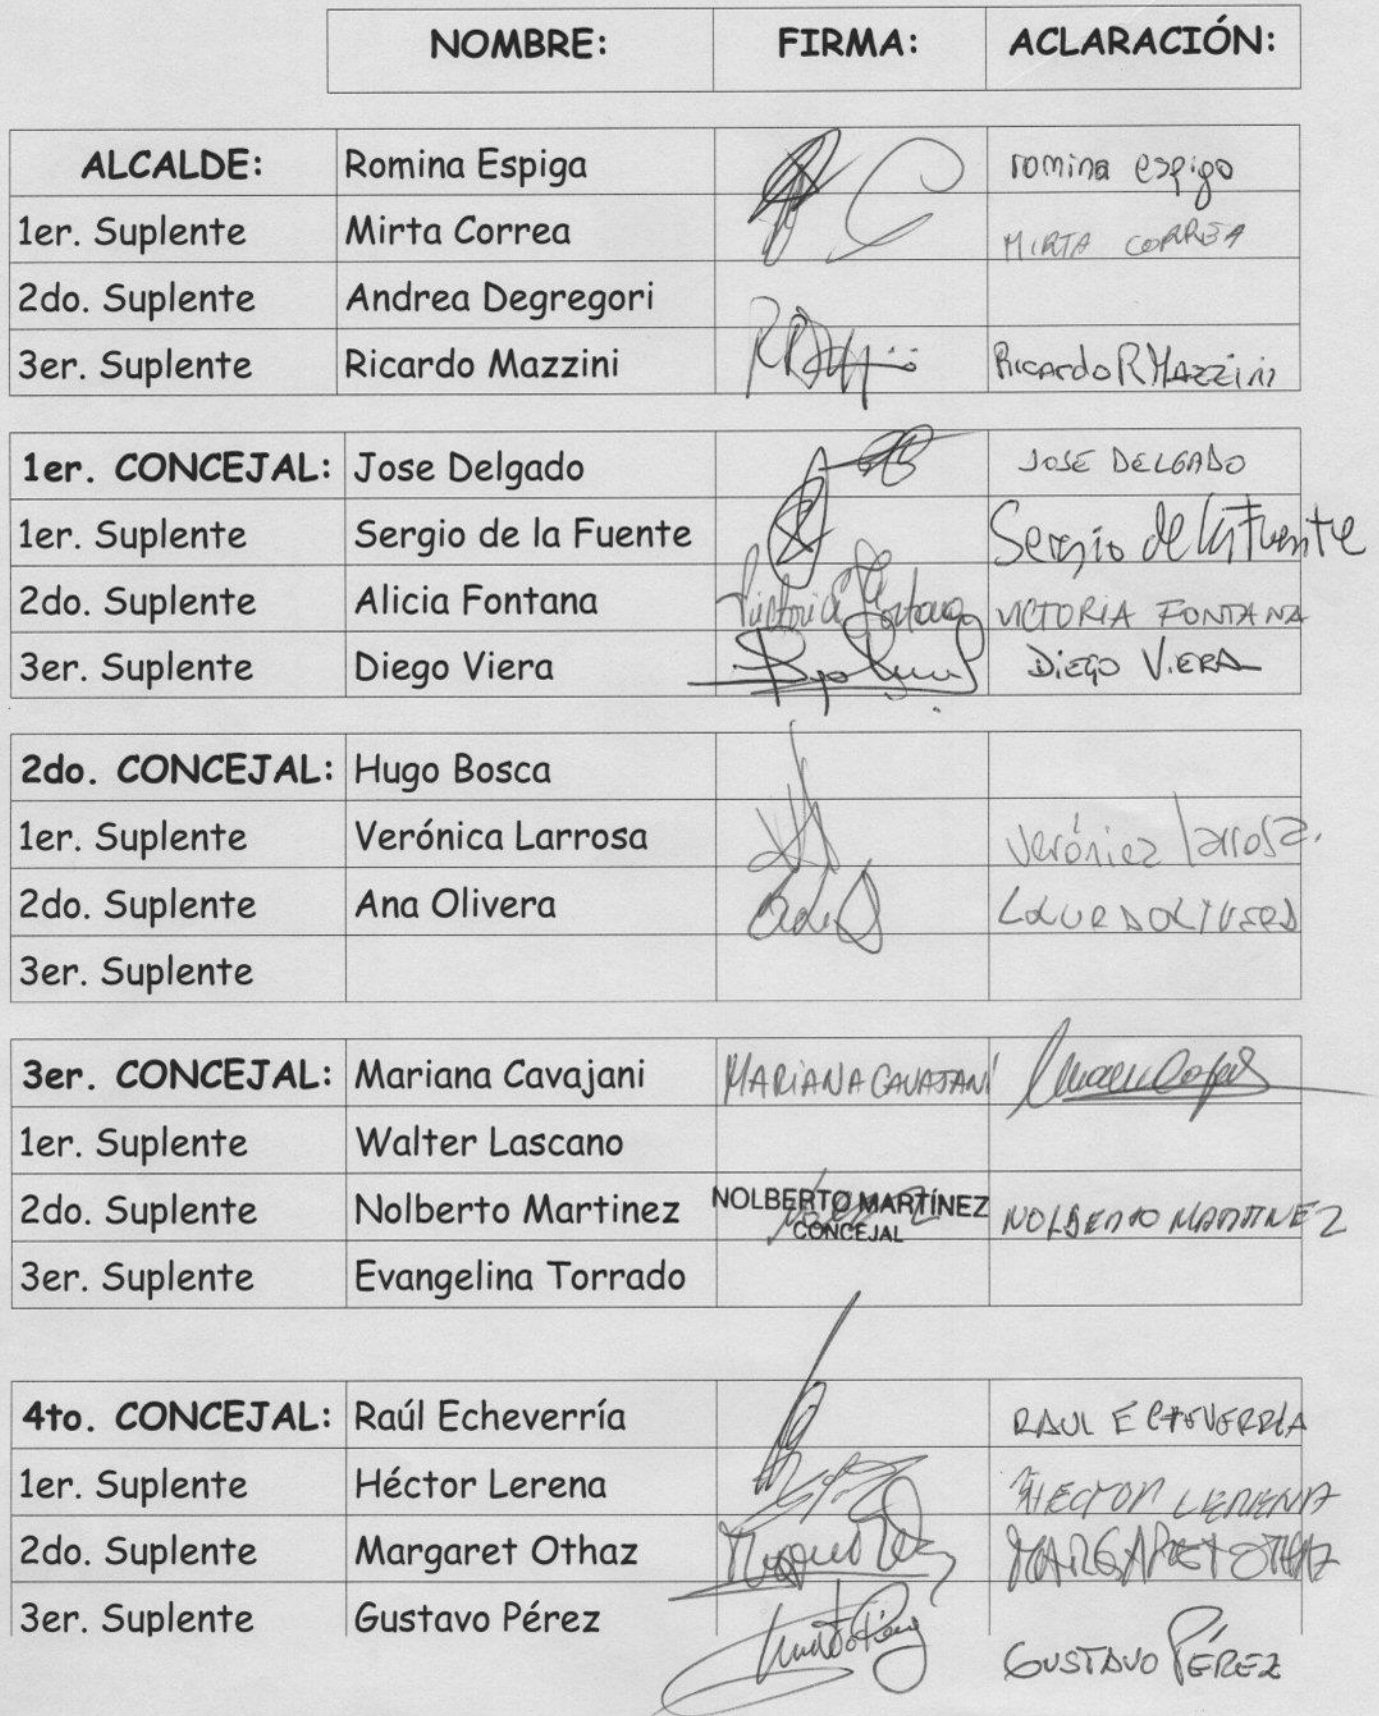 NOMBRE: FIRMA: ACLARACIÓN:
ALCALDE: Romina Espiga romina espiga
1er. Suplente Mirta Correa MIRTA CORREA
2do. Suplente Andrea Degregori
3er. Suplente Ricardo Mazzini Ricardo R Mazzini
1er. CONCEJAL: Jose Delgado JOSE DELGADO
1er. Suplente Sergio de la Fuente Sergio de la Fuente
2do. Suplente Alicia Fontana Victoria Fontana VICTORIA FONTANA
3er. Suplente Diego Viera DIEGO VIERA
2do. CONCEJAL: Hugo Bosca
1er. Suplente Verónica Larrosa Verónica Larrosa.
2do. Suplente Ana Olivera OLIVERA
3er. Suplente
3er. CONCEJAL: Mariana Cavajani MARIANA CAVAJANI
1er. Suplente Walter Lascano
2do. Suplente Nolberto Martinez NOLBERTO MARTÍNEZ NOLBERTO MARTINEZ
CONCEJAL
3er. Suplente Evangelina Torrado
4to. CONCEJAL: Raúl Echeverría RAUL ECHEVERRIA
1er. Suplente Héctor Lerena HECTOR LERENA
2do. Suplente Margaret Othaz MARGARET OTHAZ
3er. Suplente Gustavo Pérez GUSTAVO PÉREZ